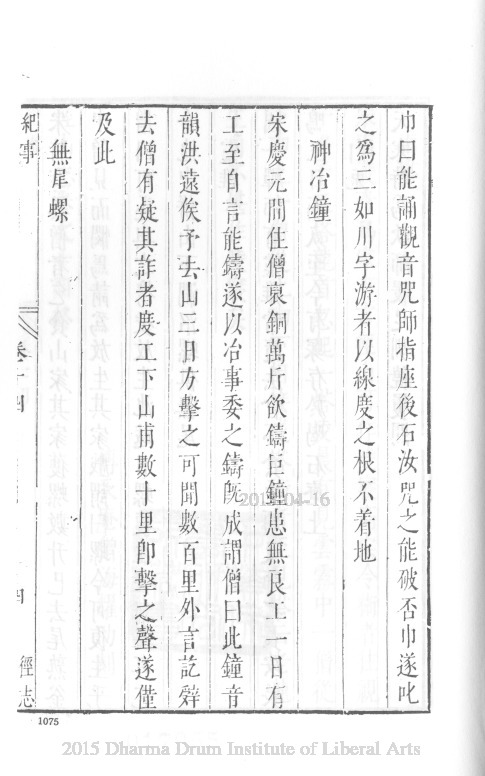 巾曰能誦觀音咒師指座後石汝咒之能破否巾遂叱
之爲三如川字游者以線度之根不着地
神冶鐘
宋慶元間住僧裒銅萬斤欲鑄巨鐘患無良工一日有
工至自言能鑄遂以冶事委之鑄旣成謂僧曰此鐘音
韻洪遠俟予去山三日方擊之可聞數百里外言訖辭
去僧有疑其詐者度工下山甫數十里卽擊之聲遂僅
及此
無尾螺
紀事
卷十四
四
徑志
1075
2015-04-16
2015 Dharma Drum Institute of Liberal Arts